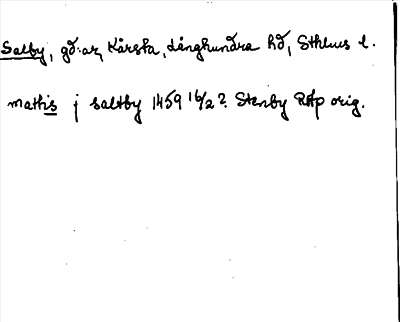 Salby, gd:ar, Kårsta, Långhundra hd, Sthlms l.
mathis j saltby 1459 16/2? Stenby RAp orig.